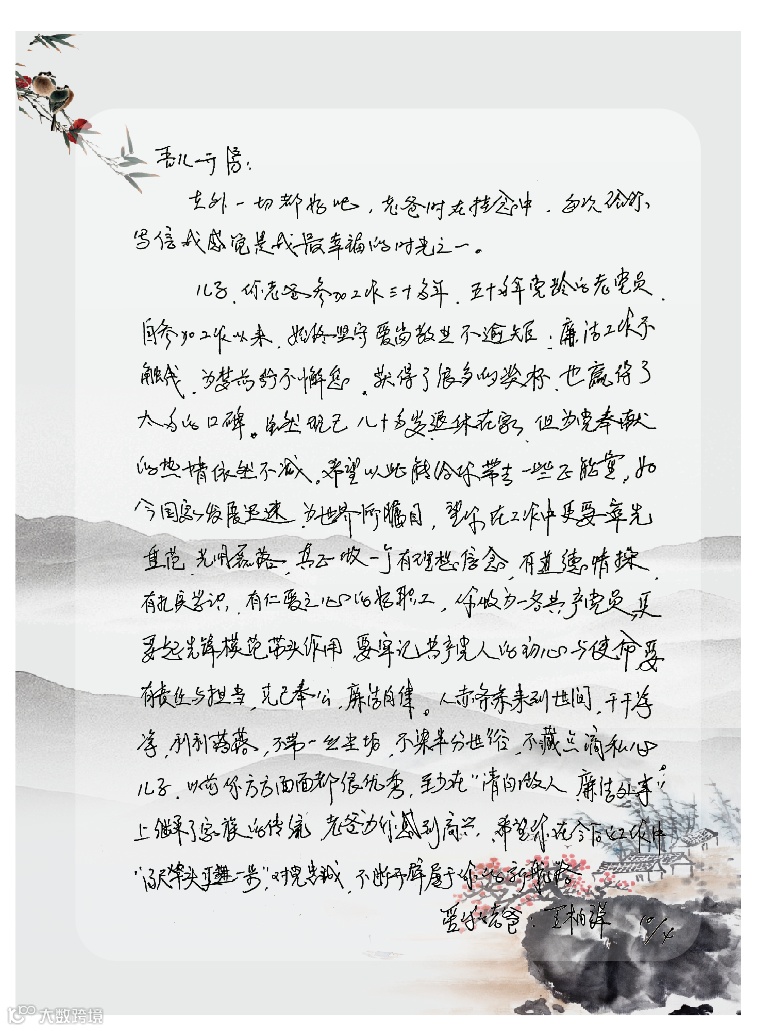 吾儿一于 :
在外一切都好吧，老爸时在挂念中，每次给你
写信我感觉是我最幸福的时光之一。
儿子，你老爸参加工作三十多年，五十多年党龄的老党员，
自参加工作以来，始终坚守爱岗敬业不逾矩；廉洁工作不
触线，为梦前行不懈怠，获得了很多的奖杯，也赢得了
太多的口碑。虽然现已八十多岁退休在家，但为党奉献
的热情依然不减，希望以此能给你带去一些正能量，如
今国家发展迅速，为世界所瞩目，望你在工作中更要率先
垂范，光明磊落，真正做一个有理想信念，有道德情操，
有扎实学识，有仁爱之心的好职工，你做为一名共产党员，更
要起先锋模范带头作用，要牢记共产党人的初心与使命，要
有责任与担当，克己奉公，廉洁自律。人赤条条来到世间，干干净
净，利利落落，不带一丝尘垢，不染半分世俗，不藏点滴私心。
儿子，以前你方方面面都很优秀，至少在“清白做人，廉洁处事”
上继承了家族的传统，老爸为你感到高兴，希望你在今后的工作中
“百尺竿头更进一步”，对党忠诚，不断开辟属于你的新航路
爱你的老爸：王柏祥 10/4
大数跨境